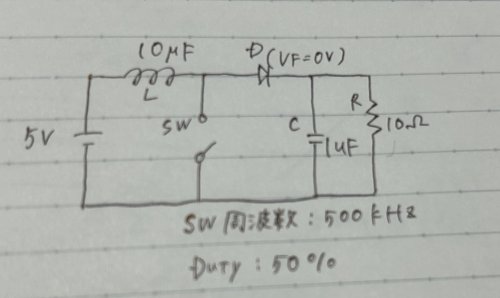 10μF
D (VF=0V)
L
5V
SW
C
1uF
R
10Ω
SW 周波数 : 500kHz
Duty : 50%